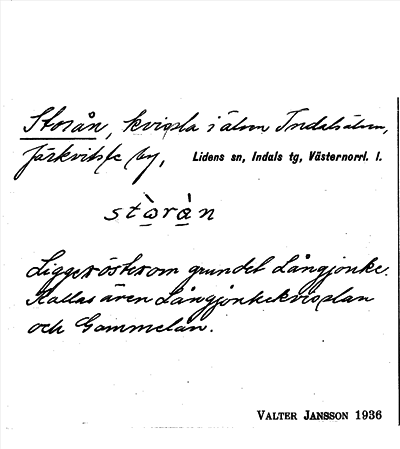 Storån, kvissla i älven Indalsälven,
Järkvitsle by, Lidens sn, Indals tg, Västernorrl. l.
stò̱rà̱n
Ligger öster om grundet Långjonke.
Kallas även Långjonkekvisslan
och Gammelån.
VALTER JANSSON 1936